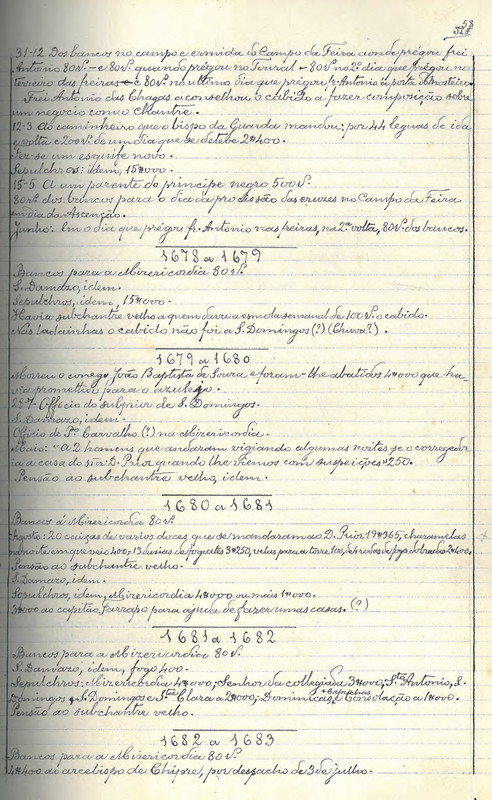 58
31-12 Dos bancos no campo e ermida do Campo da Feira aonde prégou frei
Antonio 80rs. - e 80rs. quando prégou no Toural - 80rs. no 2º dia que prégou no
terreiro das freiras e 80rs. no ultimo dia que prégou fr. Antonio á porta do mosteiro
Frei Antonio das Chagas aconselhou o cabido a fazer composição sobre
um negocio com o Chantre.
12-3 Ao caminheiro que o bispo da Guarda mandou: por 44 leguas de ida
e volta e 200rs. de um dia que se deteve 2#400.
Fez-se um esquife novo.
Sepulchros: idem, 15#000.
15-5 A um parente do principe negro 500rs.
80rs. dos bancos para o dia da procissão das cruzes no Campo da Feira
em dia da Ascenção.
Junho: Em o dia que prégou fr. Antonio nas feiras, na 2ª volta, 80rs. dos bancos.
1678 a 1679
Bancos para a Misericordia 80rs.
S. Damazo, idem.
Sepulchros, idem, 15#000.
Havia subchantre velho a quem dava a esmola semanal de 100rs. o cabido.
Nas ladainhas o cabido não foi a S. Domingos (?) (Chuva?).
1679 a 1680
Morreu o conego João Baptista de Souza e foram-lhe abatidos 4#000 que ha-
via promettido para o azulejo.
28-7 Officio do subprior de S. Domingos.
S. Damazo, idem.
Officio de Pe. Carvalho (?) na Mizericordia.
Maio: "A 2 homens que andaram vigiando algumas noites se o corregedor
ia a casa do snr. D. Prior quando lhe viemos com suspeições" 250.
Pensão ao subchantre velho, idem.
1680 a 1681
Bancos á Misericordia 80rs.
Agosto: 20 caixas de varios doces que se mandaram ao D. Prior 19#365, charamelas
na noite em que veio 400, 13 duzias de foguetes 3#250, velas para a torre 100, de rodas de fogo dobradas 2#400.
Pensão ao subchantre velho.
S. Damazo, idem.
Sepulchros, idem, Misericordia 4#000 ou mais 1#000.
3#000 ao capitão Farrapo para ajuda de fazer umas casas. (?)
1681 a 1682
Bancos para a Mizericordia 80rs.
S. Damazo, idem, fogo 400.
Sepulchros: Mizericordia 4#000; Senhor da collegiada 3#000; Sto. Antonio, S.
Domingos, S. Domingos e Sta. Clara a 2#000; Dominicas, + Capuchas e Consolação a 1#000.
Pensão ao subchantre velho.
1682 a 1683
Bancos para a Misericordia 80rs.
4#400 ao arcebispo de Chipre, por despacho de 3 de julho.